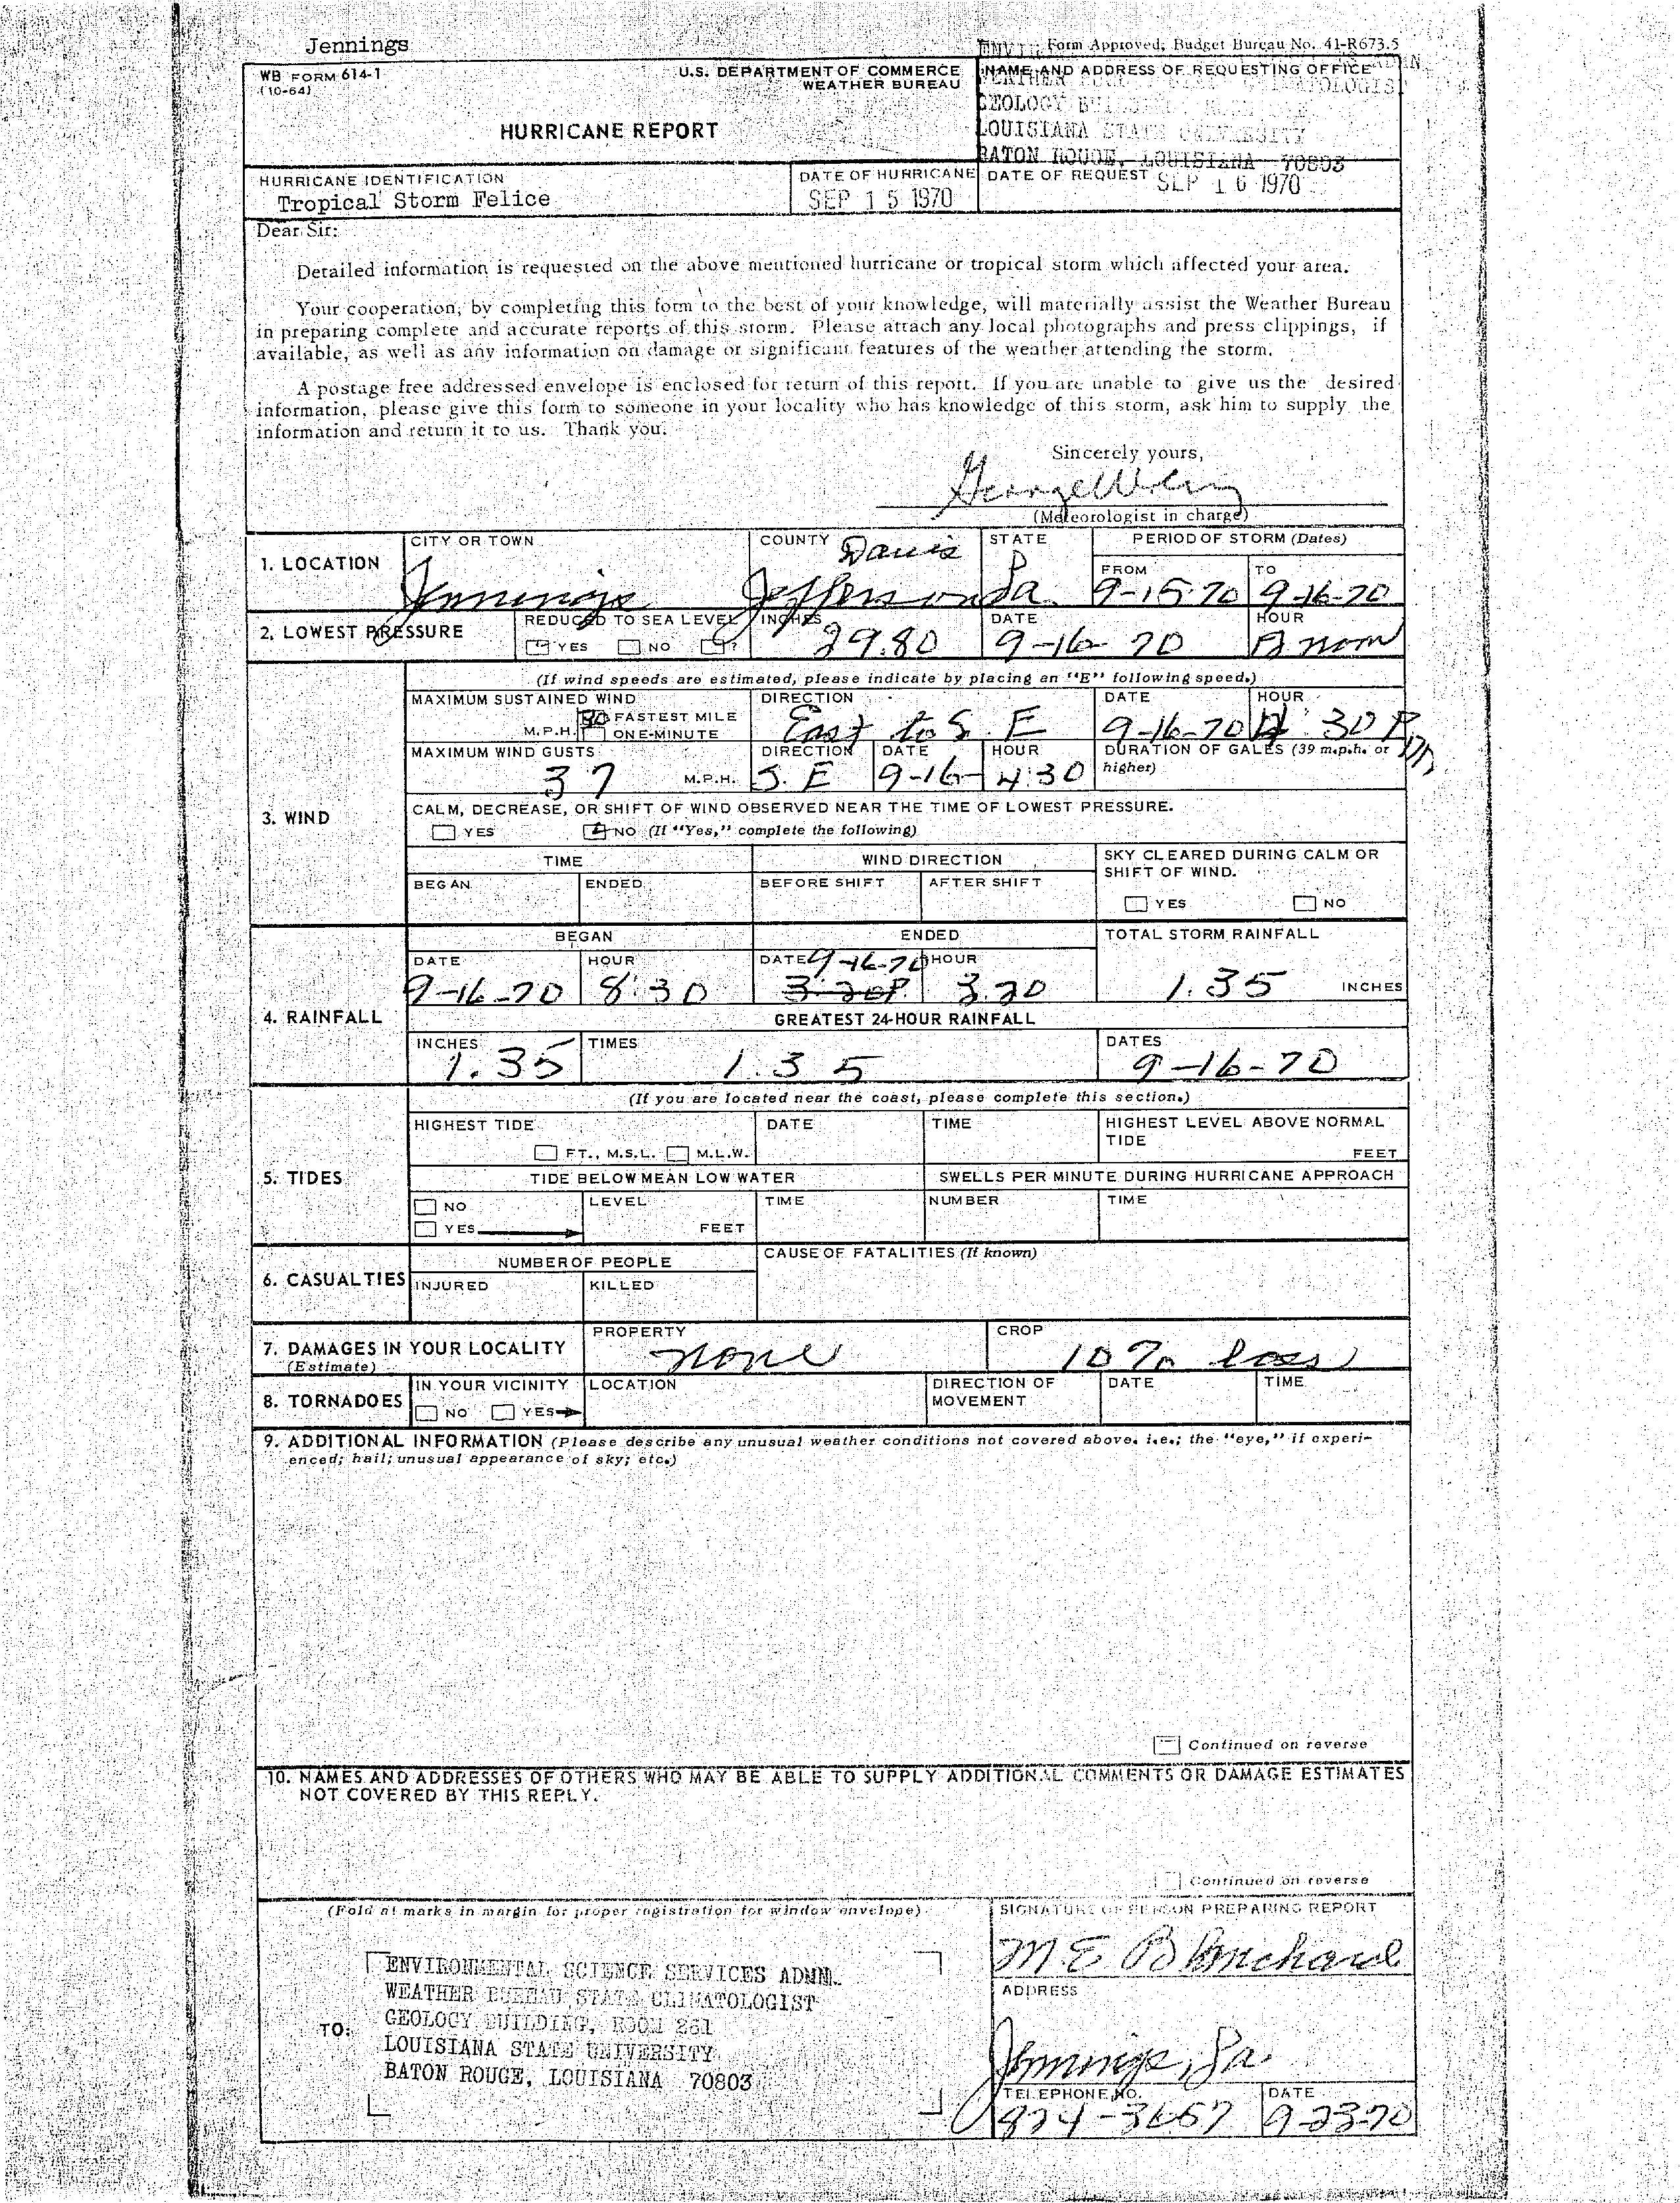 Jennings
Form Approved; Budget Bureau No. 41-R673.5
WB FORM 614-1
(10-64)
U.S. DEPARTMENT OF COMMERCE
WEATHER BUREAU
HURRICANE REPORT
NAME AND ADDRESS OF REQUESTING OFFICE
GEOLOGY
LOUISIANA STATE UNIVERSITY
BATON ROUGE, LOUISIANA 70803
HURRICANE IDENTIFICATION
Tropical Storm Felice
DATE OF HURRICANE
SEP 15 1970
DATE OF REQUEST
SEP 16 1970
Dear Sir:
Detailed information is requested on the above mentioned hurricane or tropical storm which affected your area.
Your cooperation, by completing this form to the best of your knowledge, will materially assist the Weather Bureau
in preparing complete and accurate reports of this storm. Please attach any local photographs and press clippings, if
available, as well as any information on damage or significant features of the weather attending the storm.
A postage free addressed envelope is enclosed for return of this report. If you are unable to give us the desired
information, please give this form to someone in your locality who has knowledge of this storm, ask him to supply the
information and return it to us. Thank you.
Sincerely yours,
(Meteorologist in charge)
1. LOCATION
CITY OR TOWN
Jennings
COUNTY
Jefferson Davis
STATE
La.
PERIOD OF STORM (Dates)
FROM
9-15-70
TO
9-16-70
2. LOWEST PRESSURE
REDUCED TO SEA LEVEL
YES NO ?
INCHES
29.80
DATE
9-16-70
HOUR
noon
3. WIND
(If wind speeds are estimated, please indicate by placing an "E" following speed.)
MAXIMUM SUSTAINED WIND
M.P.H. FASTEST MILE
ONE-MINUTE
DIRECTION
East to S. E
DATE
9-16-70
HOUR
4:30 P.M.
MAXIMUM WIND GUSTS
37 M.P.H.
DIRECTION
S. E
DATE
9-16-
HOUR
4:30
DURATION OF GALES (39 m.p.h. or
higher)
CALM, DECREASE, OR SHIFT OF WIND OBSERVED NEAR THE TIME OF LOWEST PRESSURE.
YES NO (If "Yes," complete the following)
TIME
WIND DIRECTION
SKY CLEARED DURING CALM OR
SHIFT OF WIND.
BEGAN
ENDED
BEFORE SHIFT
AFTER SHIFT
YES NO
4. RAINFALL
BEGAN
ENDED
TOTAL STORM RAINFALL
DATE
9-16-70
HOUR
8:30
DATE
9-16-70
3:20P.
HOUR
3.20
1.35 INCHES
GREATEST 24-HOUR RAINFALL
INCHES
1.35
TIMES
1.35
DATES
9-16-70
5. TIDES
(If you are located near the coast, please complete this section.)
HIGHEST TIDE
FT., M.S.L. M.L.W.
DATE
TIME
HIGHEST LEVEL ABOVE NORMAL
TIDE
FEET
TIDE BELOW MEAN LOW WATER
SWELLS PER MINUTE DURING HURRICANE APPROACH
NO
YES
LEVEL
FEET
TIME
NUMBER
TIME
6. CASUALTIES
NUMBER OF PEOPLE
INJURED
KILLED
CAUSE OF FATALITIES (If known)
7. DAMAGES IN YOUR LOCALITY
(Estimate)
PROPERTY
none
CROP
10% loss
8. TORNADOES
IN YOUR VICINITY
NO YES
LOCATION
DIRECTION OF
MOVEMENT
DATE
TIME
9. ADDITIONAL INFORMATION (Please describe any unusual weather conditions not covered above. i.e.; the "eye," if experi-
enced; hail; unusual appearance of sky; etc.)
Continued on reverse
10. NAMES AND ADDRESSES OF OTHERS WHO MAY BE ABLE TO SUPPLY ADDITIONAL COMMENTS OR DAMAGE ESTIMATES
NOT COVERED BY THIS REPLY.
Continued on reverse
(Fold at marks in margin for proper registration for window envelope)
TO:
ENVIRONMENTAL SCIENCE SERVICES ADMN.
WEATHER BUREAU STATE CLIMATOLOGIST
GEOLOGY BUILDING, ROOM 261
LOUISIANA STATE UNIVERSITY
BATON ROUGE, LOUISIANA 70803
SIGNATURE OF PERSON PREPARING REPORT
M. E Blanchard
ADDRESS
Jennings, La.
TELEPHONE NO.
824-3657
DATE
9-23-70